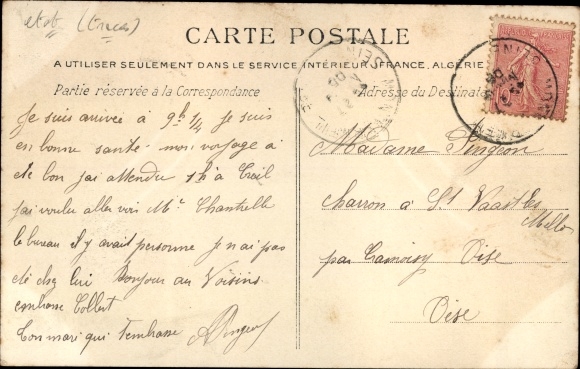 CARTE POSTALE
A UTILISER SEULEMENT DANS LE SERVICE INTÉRIEUR (FRANCE, ALGÉRIE
Partie réservée à la Correspondance
Adresse du Destinataire
Je suis arrivée à 9h 1/4 je suis
en bonne santé mon voyage à
été bon j'ai attendu 1h à Creil
j'ai voulu aller voir Mr Chantrelle
le bureau il y avait personne je n'ai pas
été chez lui Bonjour au Voisins
embrasse Colbert
Ton mari qui t'embrasse
Madame Pingeon
charron à St Vaast les
Mello
par Cramoisy Oise
Oise